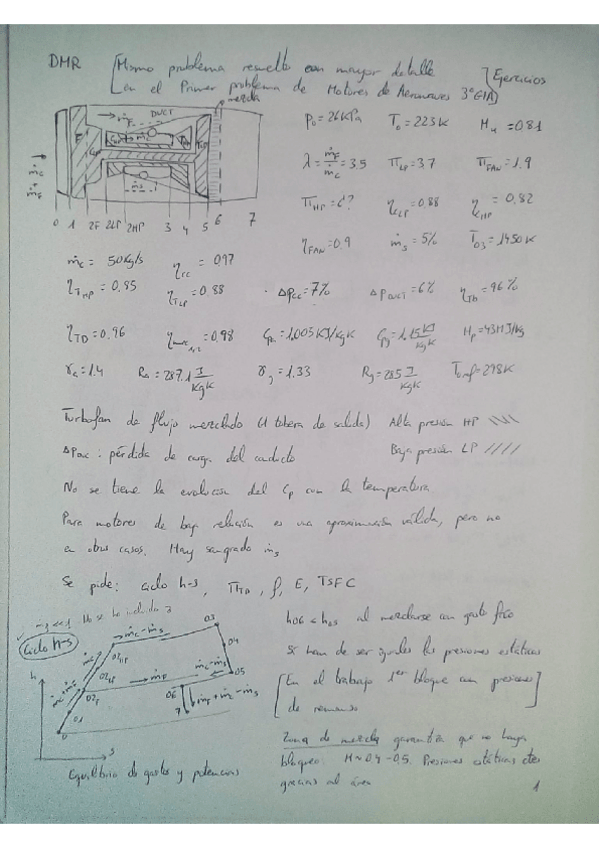 DMR [Mismo problema resuelto con mayor detalle
en el Primer problema de Motores de Aeronaves 3º GIA]
Ejercicios
DUCT mezcla
ṁF
ṁs
0 1 2F 2LP 2HP 3 4 5 6 7
P0 = 26 KPa T0 = 223 K M4 = 0.81
λ = ṁF/ṁc = 3.5 πLP = 3.7 πFAN = 1.9
πHP = ¿? ηcLP = 0.88 ηcHP = 0.82
ηFAN = 0.9 ṁs = 5% T03 = 1450 K
ṁc = 50 Kg/s ηcc = 0.97
ηTHP = 0.85 ηTLP = 0.88 · ΔPcc = 7% ΔPDUCT = 6% ηTb = 96%
ηTD = 0.96 ηmec1,2 = 0.98 Cpa = 1,005 KJ/KgK Cpg = 1.15 KJ/KgK Hp = 43 MJ/Kg
γa = 1.4 Ra = 287.1 J/KgK γg = 1,33 Rg = 285 J/KgK Tref = 298 K
Turbofan de flujo mezclado (1 tobera de salida) Alta presión HP \\\\
ΔPDUC : pérdida de carga del conducto Baja presión LP ////
No se tiene la evolución del Cp con la temperatura
Para motores de baja relación es una aproximación válida, pero no
en otros casos. Hay sangrado ṁs
Se pide: ciclo h-s, πHP, f, E, TSFC
No se ha incluido
Ciclo h-s
h
s
ṁc - ṁs
03
04
05
02HP
02LP
02F
01
0
ṁF
06
7
ṁF + ṁc - ṁs
Equilibrio de gastos y potencias
h06 < h05 al mezclarse con gasto frío
Si han de ser iguales las presiones estáticas
[En el trabajo 1er bloque con presiones
de remanso]
Zona de mezcla garantiza que no haya
bloqueo M≈0.4-0.5. Presiones estáticas ctes
gracias al área
1